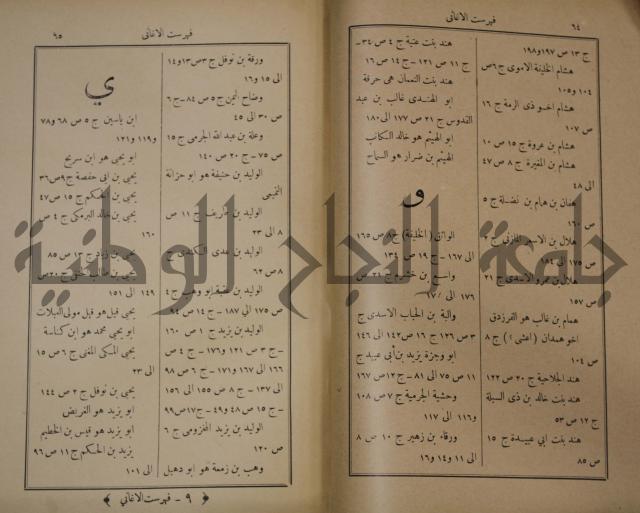 ٦٤
فهرست الاغانى
ج ١٣ ص ١٩٧ و ١٩٨
هشام الخليفة الاموى ج ٦ ص
١٠٤ و ١٠٥
هشام اخو ذى الرمة ج ١٦
ص ١٠٧
هشام بن عروة ج ١٥ ص ١٠
هشام بن المغيرة ج ٨ ص ٤٧
الى ٤٨
همام بن نضلة ج ٥
ص ١٦٠
هلال بن الاسعر المازنى ج ٢
ص ١٧٥ الى
هلال بن عمرو الاسدى ج ٢١
ص ١٥٧
همام بن غالب هو الفرزدق
اخو همدان (اعشى) ج ٨
ص ١٠٤
هند الجلاحية ج ٢٠ ص ١٢٢
هند بنت خالد بن ذى السبلة
ج ١٢ ص ٥٣
هند بنت ابي عبيدة ج ١٥
ص ٨٥
هند بنت عتبة ج ٤ ص ٣٤ -
ج ١١ ص ١٢١ - ج ١٤ ص ١٦
هند بنت النعمان هي حرقة
ابو الهندى غالب بن عبد
القدوس ج ٢١ ص ١٧٧ الى ١٨٠
ابو الهيثم هو خالد الكاتب
الهيثم بن ضرار هو الشماخ
و
الواثق (الخليفة) ج ٨ ص ١٦٥
الى ١٦٧ - ج ١٩ ص
واسع بن خشرم ج ٢١ ص
١٧٦ الى ١٧٧
والبة بن الحباب الاسدى ج
٣ ص ١٢٦ ج ١٦ ص ١٤٢ الى ١٤٦
ابو وجزة يزيد بن أبي عبيد ج
١١ ص ٧٥ الى ٨١ - ج ١٢ ص ١٦٧
وحشية الجرمية ج ٧ ص ١٠٨
و ١١٦ الى ١١٧
ورقاء بن زهير ج ١٠ ص ٨
الى ١١ و ١٤ و ١٦
فهرست الاغانى
٦٥
ورقة بن نوفل ج ٣ ص ١٣ و ١٤
الى ١٥ و ١٦
وضاح اليمن ج ٥ ص ٨٤ - ج ٦
ص ٣٠ الى ٤٥
وعلة بن عبد الله الجرمى ج ١٥
ص ٧٥ - ج ٢٠ ص ١٤٠
الوليد بن حنيفة هو ابو حزابة
التميمى
الوليد بن طريف ج ١١ ص
٨ الى ٢٣
الوليد بن عدى الكندى ج
٨ ص ٦٢
الوليد بن عقبة ابو وهب ج ٤
ص ١٧٥ الى ١٨٧ - ج ١٤ ص ٩٤
الوليد بن يزيد ج ١ ص ١٦٠
- ج ٣ ص ١٢١ و ١٧٦ - ج ٤ ص
١٦٦ الى ١٦٧ و ١٧١ - ج ٦ ص ٩٨
الى ١٣٧ - ج ٨ ص ١٥٥ الى ١٥٦
- ج ١٥ ص ٤٨ و ٤٩ - ج ١٧ ص ٩٩
الوليد بن يزيد المخزومى ج ٦
ص ١٢٠
وهب بن زمعة هو ابو دهبل
ي
ابن ياسين ج ٥ ص ٦٨ و ٧٨
و ١١٩ و ١٢١
ابو يحيى هو ابن سريج
يحيى بن ابى حفصة ج ٩ ص ٣٦
يحيى بن الحكم ج ١٥ ص ٤٧
يحيى بن خالد البرمكى ج ٤ ص
١٦٠
يحيى بن زياد ج ١٣ ص ٨٥
يحيى بن طالب الحنفى ج ٢٠ ص
١٤٩ الى ١٥١
يحيى قيل هو فيل مولى العبلات
ابو يحيى محمد هو ابن كناسة
يحيى المكى المغنى ج ٦ ص ١٥
الى ٢٣
يحيى بن نوفل ج ٢ ص ١٤٤
ابو يزيد هو الغريض
ابو يزيد هو قيس بن الخطيم
يزيد بن الحكم ج ١١ ص ٩٦
الى ١٠١
﴿ ٩ - فهرست الاغاني ﴾
جامعة النجاح الوطنية